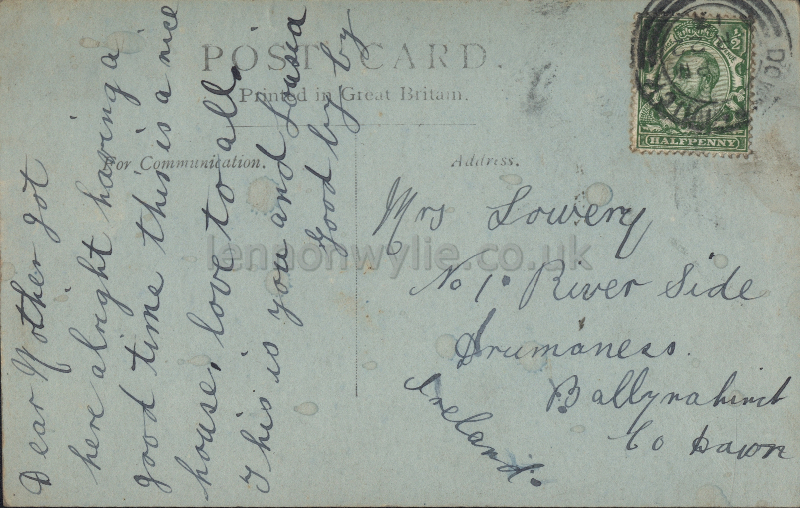 POST CARD.
Printed in Great Britain.
For Communication.
Address.
HALFPENNY
Dear Mother got
here alright having a
good time this is a nice
house, love to all.
This is you and Lousia
good by by
Mrs Lowery
No 1. River Side
Drumaness.
Ballynahinct
Co Down
Ireland.
lennonwylie.co.uk